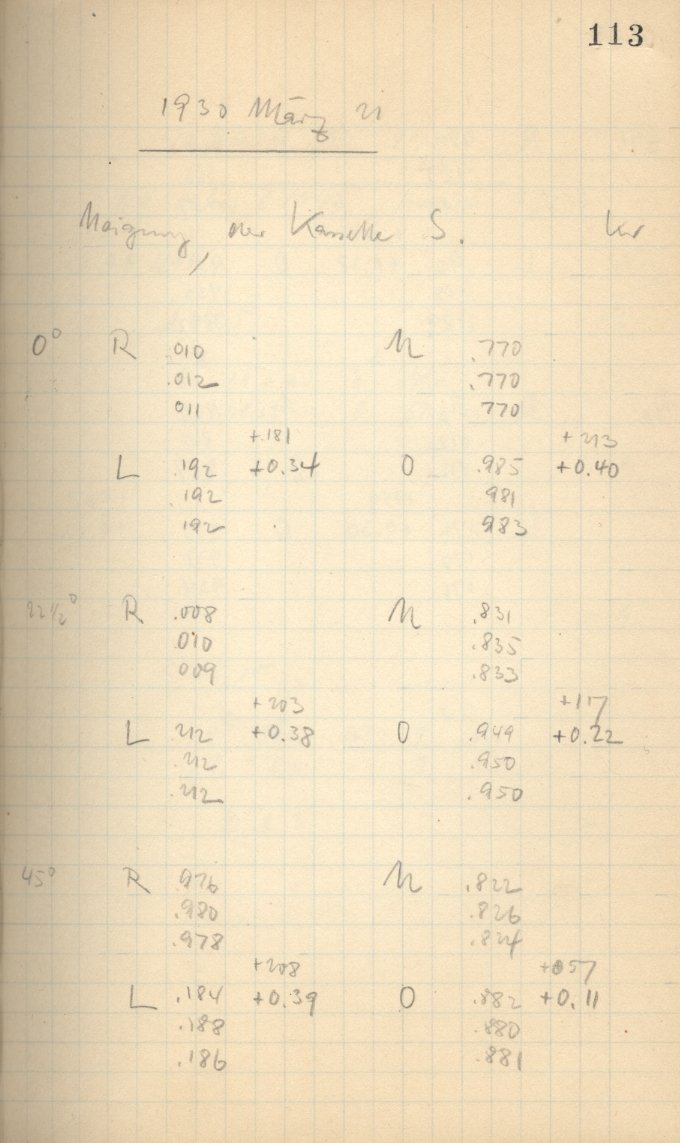 113
1930 März 21
Neigung, der Kassette S.
0° R .010 U .770
.012 .770
011 770
+.181 +213
L .192 +0.34 O .985 +0.40
.192 981
192 983
22 1/2° R .008 U .831
.010 .835
009 .833
+203 +117
L .212 +0.38 O .949 +0.22
.212 .950
.212 .950
45° R .976 U .822
.980 .826
.978 .824
+208 +057
L .184 +0.39 O .882 +0.11
.188 .880
.186 .881